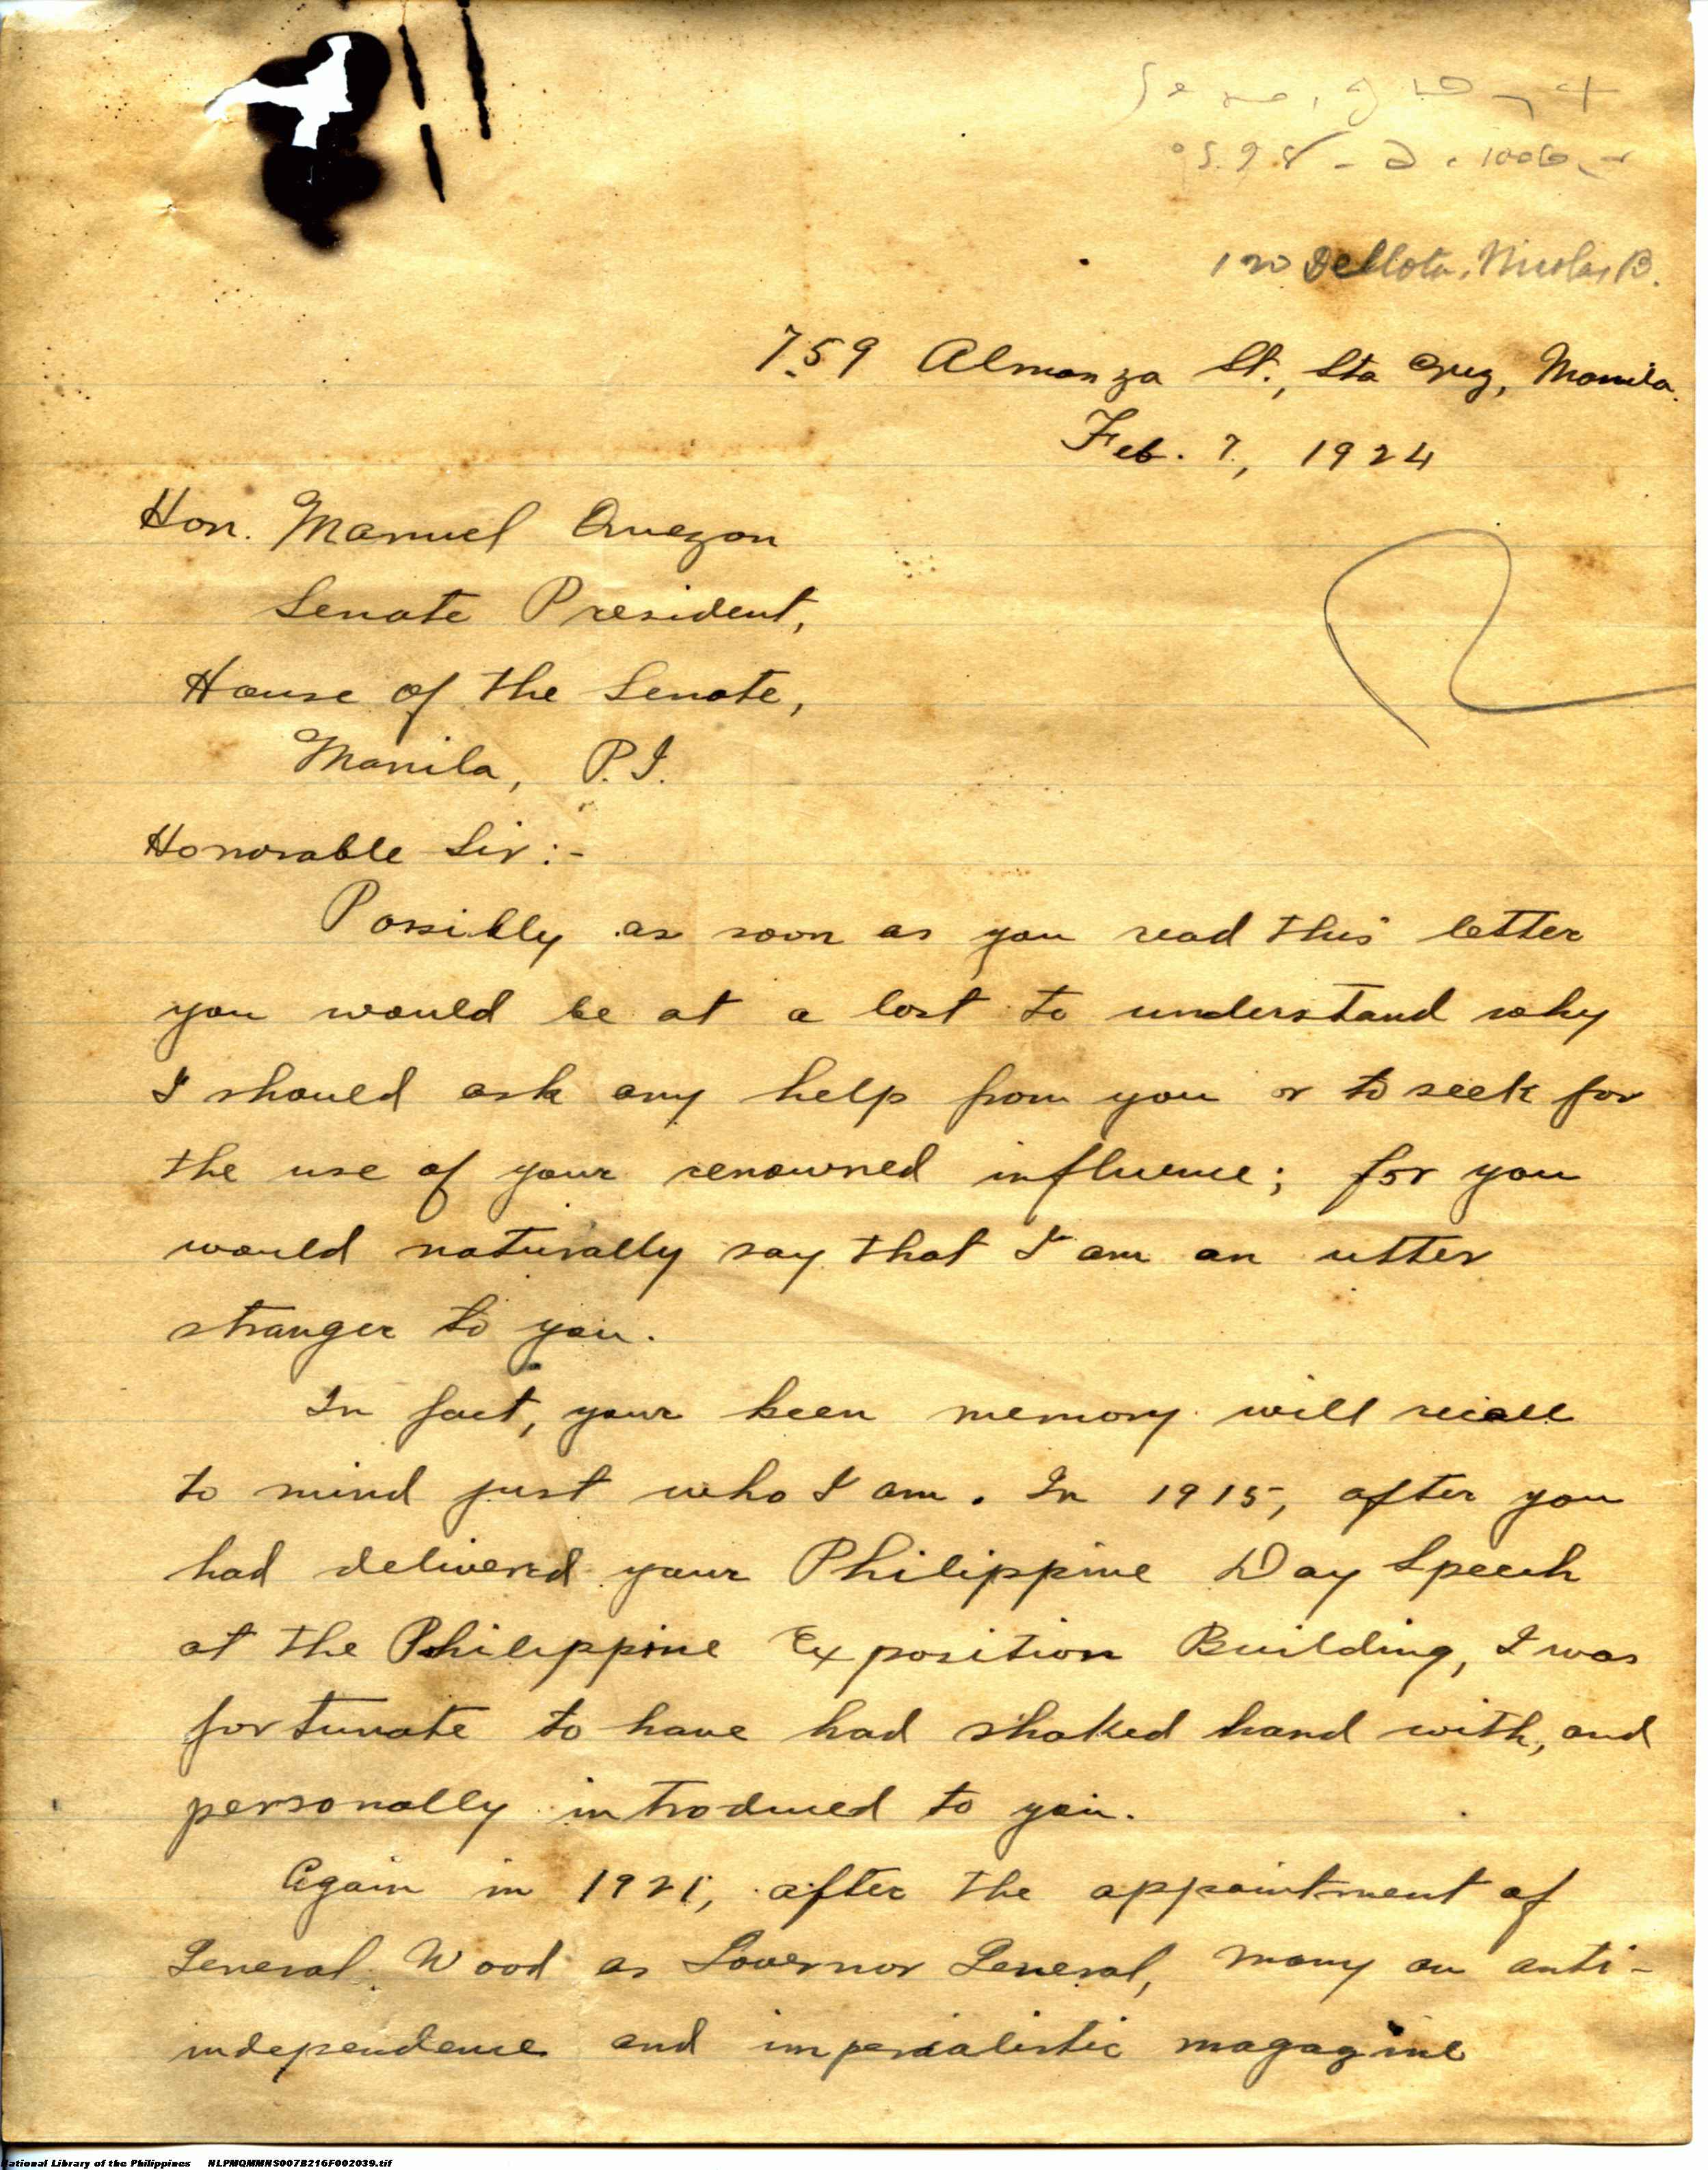 Dellota, Nicolas B.
759 Almanza St., Sta Cruz, Manila.
Feb. 7, 1924
Hon. Manuel Quezon
Senate President,
House of the Senate,
Manila, P.I.
Honorable Sir:-
Possibly as soon as you read this letter
you would be at a lost to understand why
I should ask any help from you or to seek for
the use of your renowned influence; for you
would naturally say that I am an utter
stranger to you.
In fact, your keen memory will recall
to mind just who I am. In 1915, after you
had delivered your Philippine Day Speech
at the Philippine Exposition Building, I was
fortunate to have had shaked hand with, and
personally introduced to you.
Again in 1921, after the appointment of
General Wood as Governor General, many an anti-
independence and imperialistic magazine
National Library of the Philippines NLPMQMMNS007B216F002039.tif